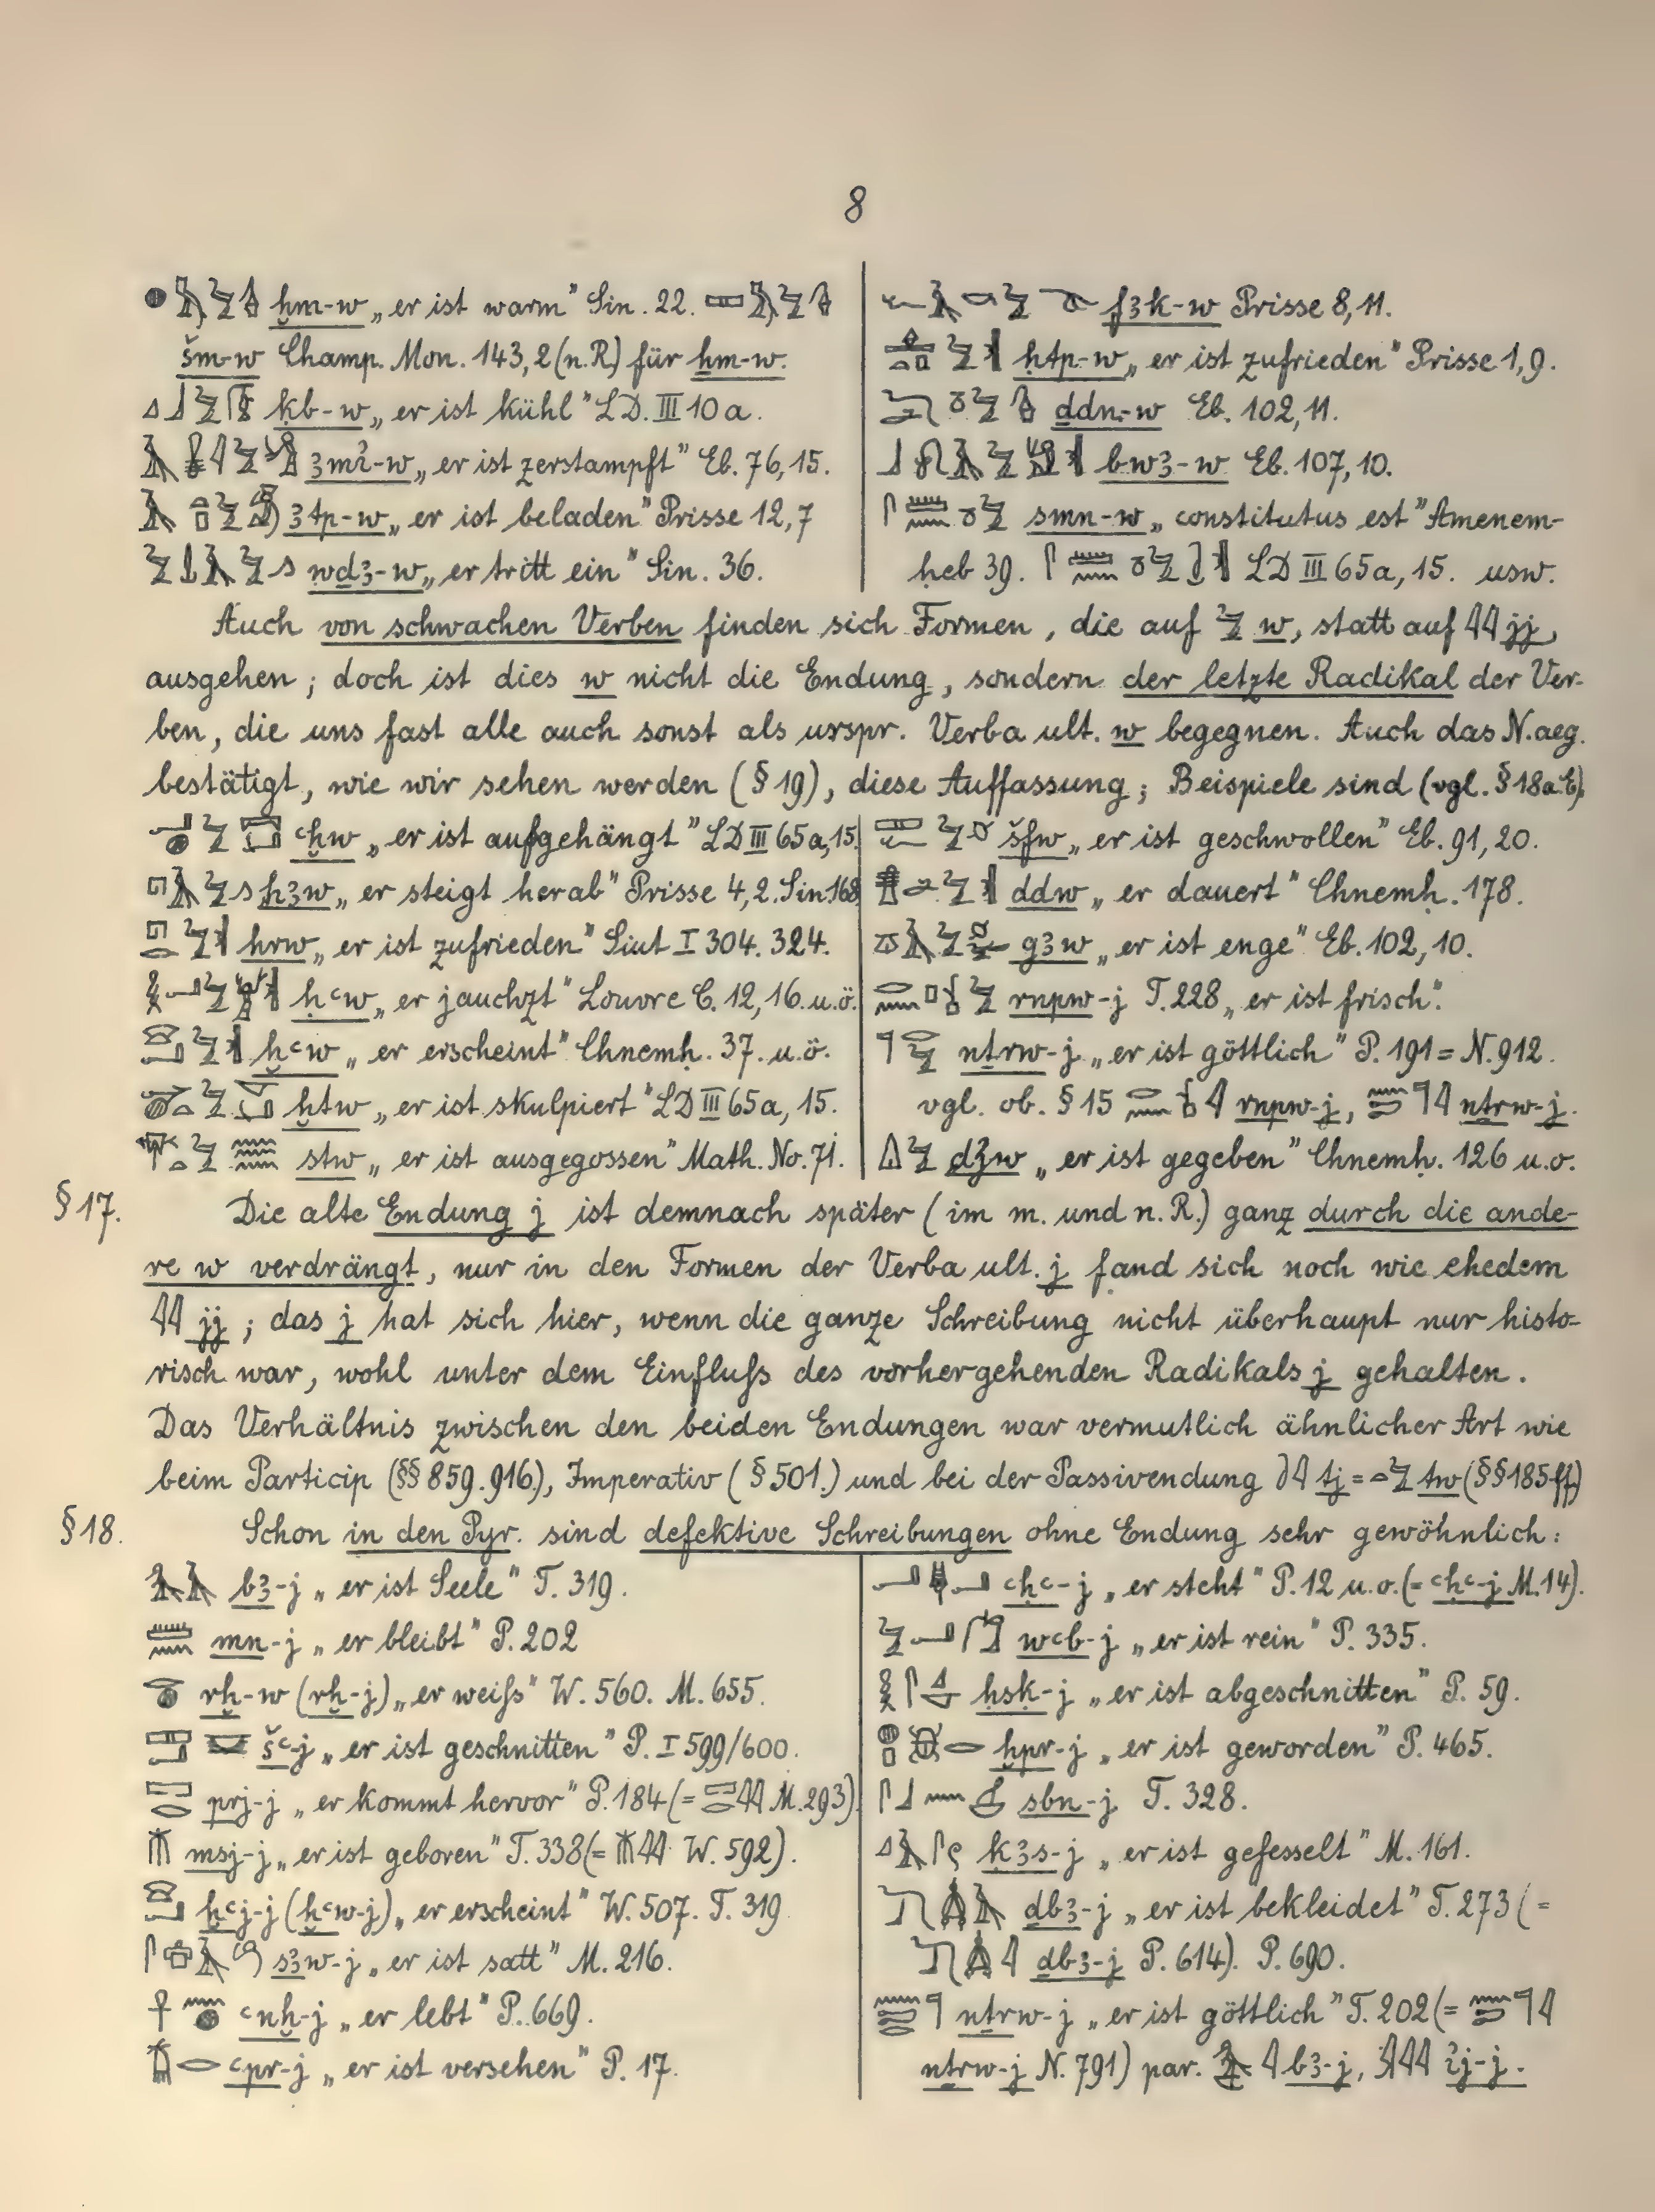 8
ḫm-w „er ist warm" Sin. 22.
šm-w Champ. Mon. 143,2 (n.R) für ḫm-w.
ḳb-w „er ist kühl" LD. III 10a.
ꜣmi̓-w „er ist zerstampft" Eb. 76,15.
ꜣtp-w „er ist beladen" Prisse 12,7
wḏꜣ-w „er tritt ein" Sin. 36.
fꜣk-w Prisse 8,11.
ḥtp-w „er ist zufrieden" Prisse 1,9.
ddn-w Eb. 102,11.
bwꜣ-w Eb. 107,10.
smn-w „constitutus est" Amenem-
ḥeb 39. LD III 65a, 15. usw.
Auch von schwachen Verben finden sich Formen, die auf w, statt auf jj,
ausgehen; doch ist dies w nicht die Endung, sondern der letzte Radikal der Ver-
ben, die uns fast alle auch sonst als urspr. Verba ult. w begegnen. Auch das N.aeg.
bestätigt, wie wir sehen werden (§ 19), diese Auffassung; Beispiele sind (vgl. § 18 a.E).
ꜥḫw „er ist aufgehängt" LD III 65a,15.
hꜣw „er steigt herab" Prisse 4,2. Sin 168
hrw „er ist zufrieden" Siut I 304. 324.
ḥꜥw „er jauchzt" Louvre C. 12, 16. u.ö.
ḫꜥw „er erscheint" Chnemḥ. 37. u.ö.
ḫtw „er ist skulpiert" LD III 65a, 15.
stw „er ist ausgegossen" Math. No. 71.
šfw „er ist geschwollen" Eb. 91, 20.
ddw „er dauert" Chnemḥ. 178.
gꜣw „er ist enge" Eb. 102, 10.
rnpw-j T. 228 „er ist frisch".
nṯrw-j „er ist göttlich" P. 191 = N. 912.
vgl. ob. § 15 rnpw-j, nṯrw-j.
dꜣw „er ist gegeben" Chnemḥ. 126 u.o.
§ 17. Die alte Endung j ist demnach später (im m. und n. R.) ganz durch die ande-
re w verdrängt, nur in den Formen der Verba ult. j fand sich noch wie ehedem
jj; das j hat sich hier, wenn die ganze Schreibung nicht überhaupt nur histo-
risch war, wohl unter dem Einfluſs des vorhergehenden Radikals j gehalten.
Das Verhältnis zwischen den beiden Endungen war vermutlich ähnlicher Art wie
beim Particip (§§ 859. 916.), Imperativ (§ 501.) und bei der Passivendung tj = tw (§§ 185 ff.)
§ 18. Schon in den Pyr. sind defektive Schreibungen ohne Endung sehr gewöhnlich:
bꜣ-j „er ist Seele" T. 319.
mn-j „er bleibt" P. 202
rḫ-w (rḫ-j) „er weiſs" W. 560. M. 655.
šꜥ-j „er ist geschnitten" P. I 599/600.
prj-j „er kommt hervor" P. 184 (= M. 293).
msj-j „er ist geboren" T. 338 (= W. 592).
ḫꜥj-j (ḫꜥw-j) „er erscheint" W. 507. T. 319
sꜣw-j „er ist satt" M. 216.
ꜥnḫ-j „er lebt" P. 669.
ꜥpr-j „er ist versehen" P. 17.
ꜥḥꜥ-j „er steht" P. 12 u.o. (= ꜥḥꜥ-j M. 14).
wꜥb-j „er ist rein" P. 335.
ḥsḳ-j „er ist abgeschnitten" P. 59.
ḫpr-j „er ist geworden" P. 465.
sbn-j T. 328.
ḳꜣs-j „er ist gefesselt" M. 161.
ḏbꜣ-j „er ist bekleidet" T. 273 (=
ḏbꜣ-j P. 614). P. 690.
nṯrw-j „er ist göttlich" T. 202 (=
nṯrw-j N. 791) par. bꜣ-j, i̓j-j.